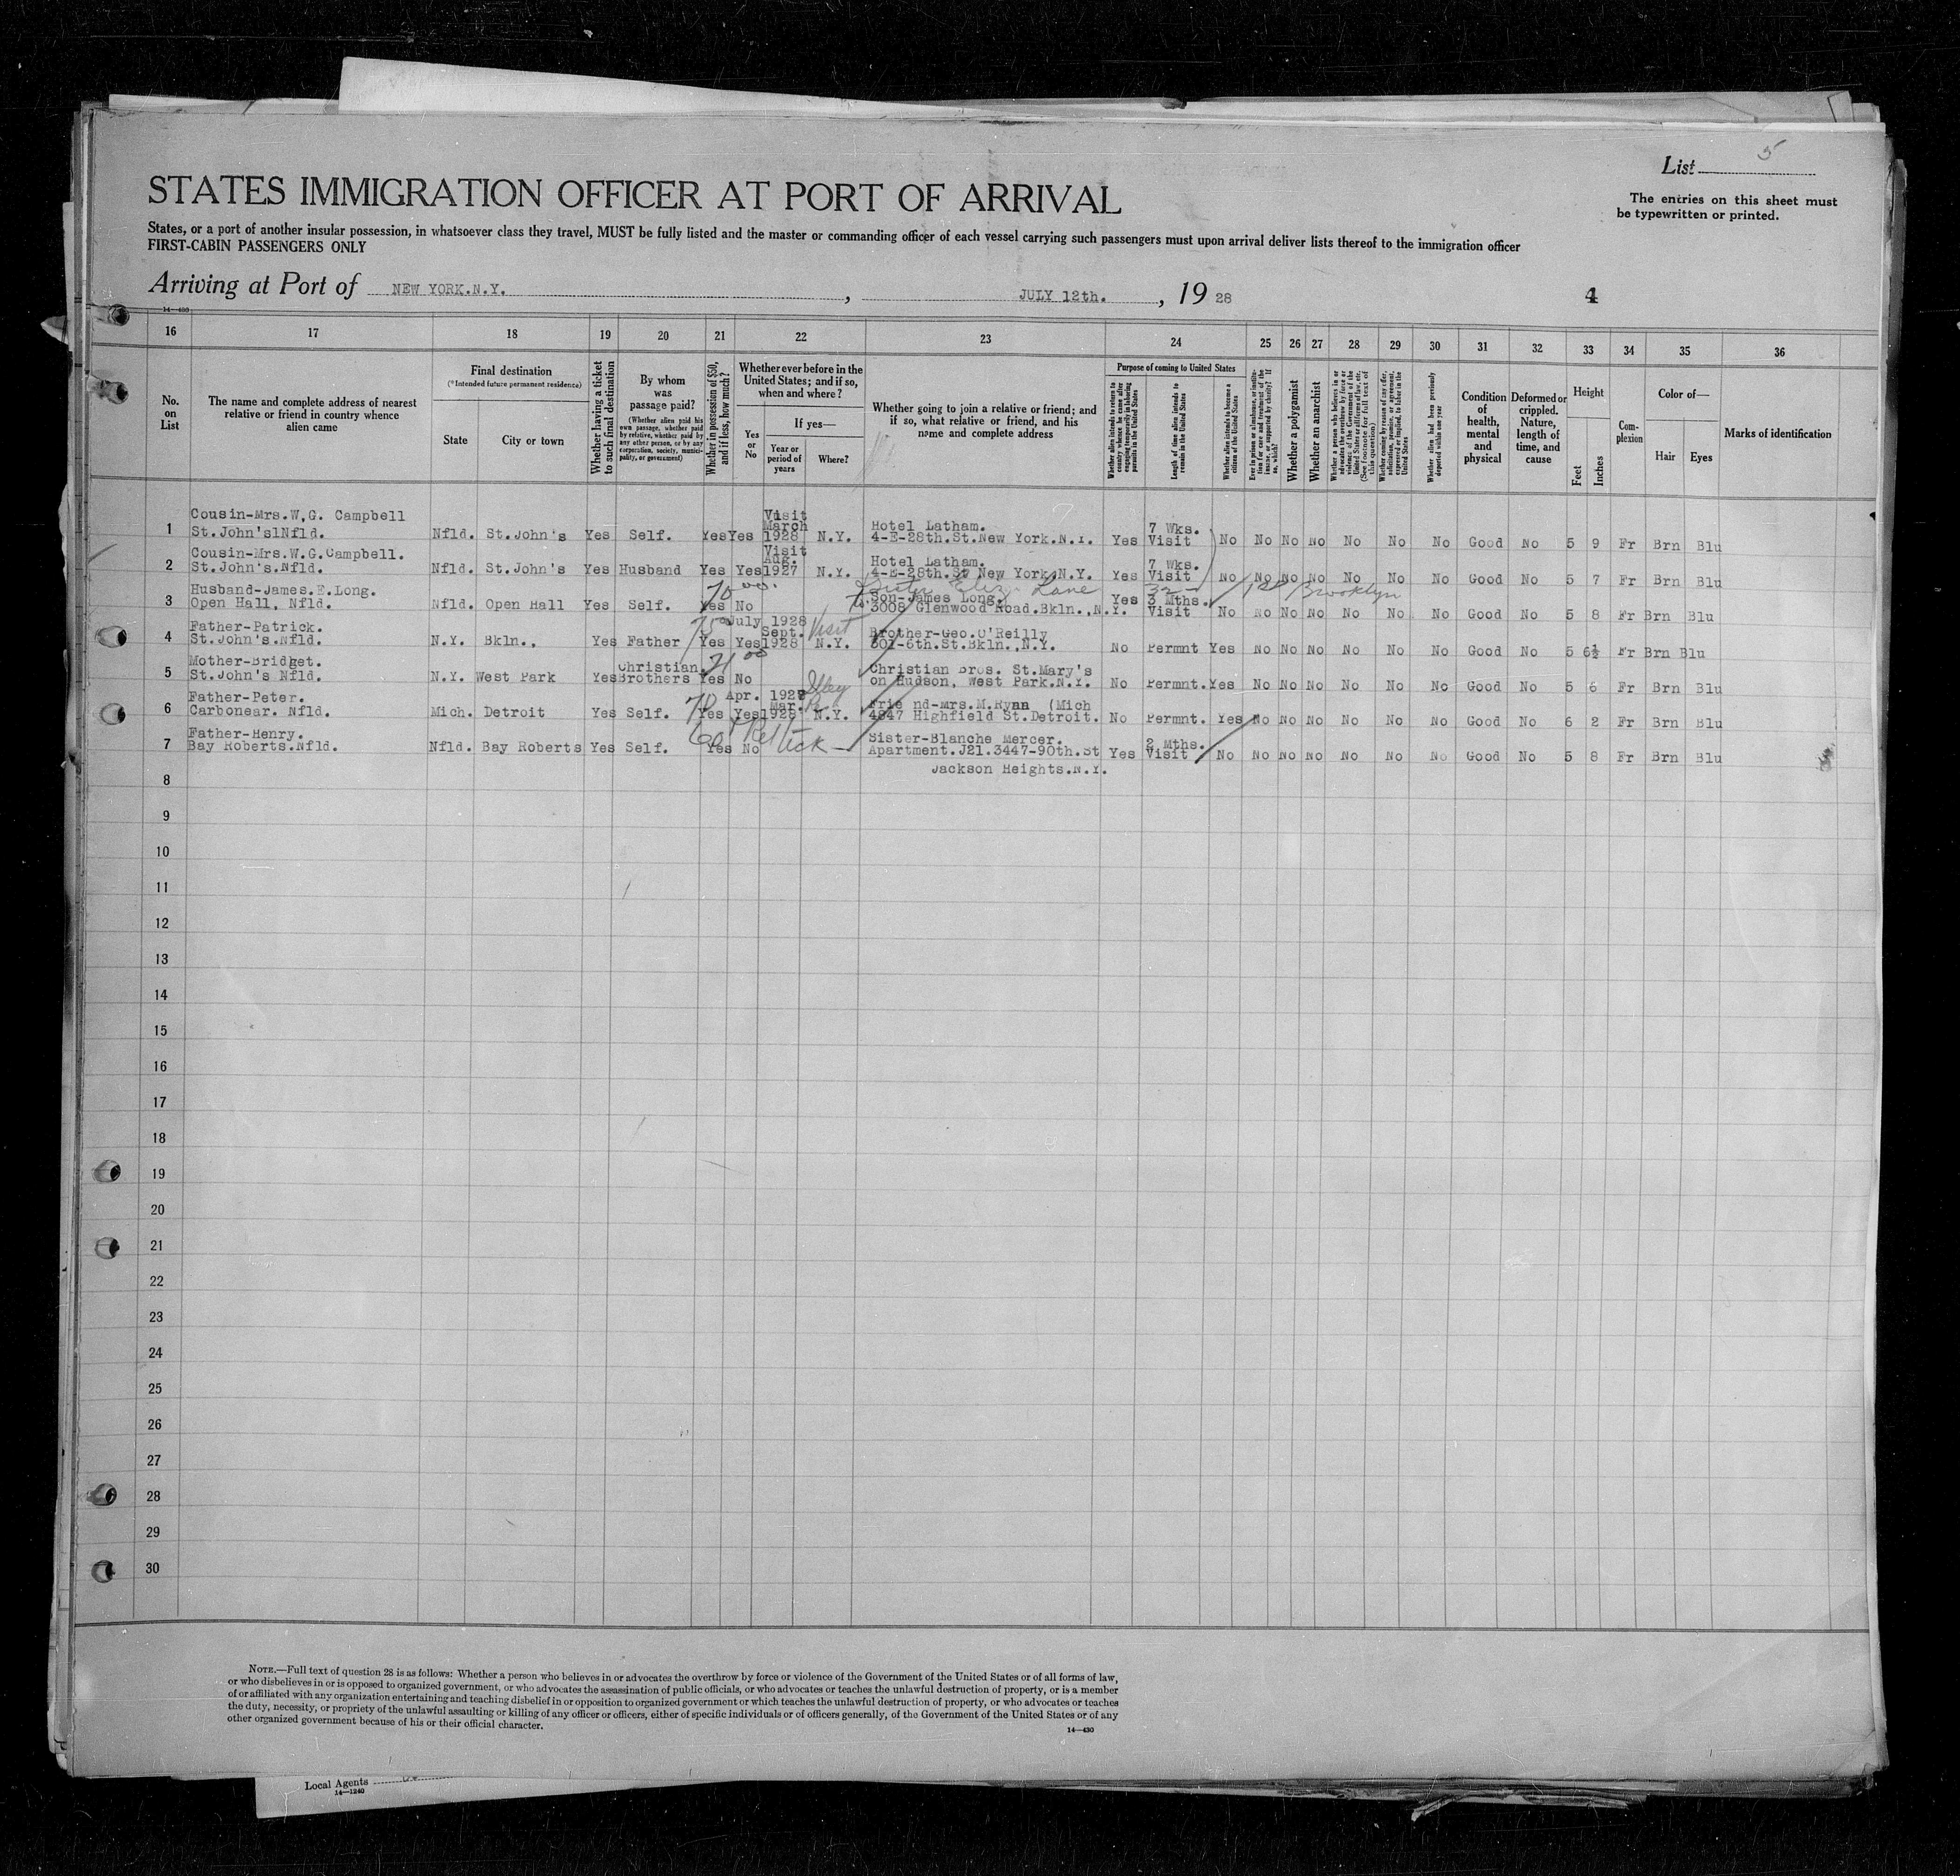 List 5
STATES IMMIGRATION OFFICER AT PORT OF ARRIVAL
The entries on this sheet must
be typewritten or printed.
States, or a port of another insular possession, in whatsoever class they travel, MUST be fully listed and the master or commanding officer of each vessel carrying such passengers must upon arrival deliver lists thereof to the immigration officer
FIRST-CABIN PASSENGERS ONLY
Arriving at Port of NEW YORK.N.Y. , JULY 12th. , 19 28
4
14—430
16 17 18 19 20 21 22 23 24 25 26 27 28 29 30 31 32 33 34 35 36
No.
on
List
The name and complete address of nearest
relative or friend in country whence
alien came
Final destination
(*Intended future permanent residence)
State
City or town
Whether having a ticket
to such final destination
By whom
was
passage paid?
(Whether alien paid his
own passage, whether paid
by relative, whether paid by
any other person, or by any
corporation, society, munici-
pality, or government)
Whether in possession of $50,
and if less, how much?
Whether ever before in the
United States; and if so,
when and where?
Yes
or
No
If yes—
Year or
period of
years
Where?
Whether going to join a relative or friend; and
if so, what relative or friend, and his
name and complete address
Purpose of coming to United States
Whether alien intends to return to
country whence he came after
engaging temporarily in laboring
pursuits in the United States
Length of time alien intends to
remain in the United States
Whether alien intends to become a
citizen of the United States
Ever in prison or almshouse, or institu-
tion for care and treatment of the
insane, or supported by charity? If
so, which?
Whether a polygamist
Whether an anarchist
Whether a person who believes in or
advocates the overthrow by force or
violence of the Government of the
United States or all forms of law, etc.
(See footnote for full text of
this question)
Whether coming by reason of any offer,
solicitation, promise, or agreement,
expressed or implied, to labor in the
United States
Whether alien had been previously
deported within one year
Condition
of
health,
mental
and
physical
Deformed or
crippled.
Nature,
length of
time, and
cause
Height
Feet
Inches
Com-
plexion
Color of—
Hair
Eyes
Marks of identification
Cousin-Mrs.W.G. Campbell Visit
March Hotel Latham. 7 Wks.
1 St.John's1Nfld. Nfld. St.John's Yes Self. Yes Yes 1928 N.Y. 4-E-28th.St.New York.N.Y. Yes Visit No No No No No No No Good No 5 9 Fr Brn Blu
Cousin-Mrs.W.G.Campbell. Visit
Aug. Hotel Latham. 7 Wks.
2 St.John's.Nfld. Nfld. St.John's Yes Husband Yes Yes 1927 N.Y. 4-E-28th.St New York.N.Y. Yes Visit No No No No No No No Good No 5 7 Fr Brn Blu
70 00. Eliz. Lane 32 Brooklyn
Husband-James.E.Long. Son-James Long. 3 Mths.
3 Open Hall, Nfld. Nfld. Open Hall Yes Self. Yes No 3008 Glenwood Road.Bkln.,N.Y. Yes Visit No No No No No No No Good No 5 8 Fr Brn Blu
75 July 1928 Visit
Father-Patrick. Sept. Brother-Geo.O'Reilly
4 St.John's.Nfld. N.Y. Bkln., Yes Father Yes Yes 1928 N.Y. 601-6th.St.Bkln.,N.Y. No Permnt Yes No No No No No No Good No 5 6½ Fr Brn Blu
Mother-Bridget. Christian 71 00 Christian Bros. St.Mary's
5 St.John's Nfld. N.Y. West Park Yes Brothers Yes No on Hudson, West Park.N.Y. No Permnt. Yes No No No No No No Good No 5 6 Fr Brn Blu
70 Apr. 1927
Father-Peter. Mar. Frie nd-Mrs.M.Ryan (Mich
6 Carbonear. Nfld. Mich. Detroit Yes Self. Yes Yes 1928 N.Y. 4847 Highfield St.Detroit. No Permnt. Yes No No No No No No Good No 6 2 Fr Brn Blu
60
Father-Henry. Sister-Blanche Mercer. 2 Mths.
7 Bay Roberts.Nfld. Nfld. Bay Roberts Yes Self. Yes No Apartment.J21.3447-90th.St Yes Visit No No No No No No No Good No 5 8 Fr Brn Blu
Jackson Heights.N.Y.
8
9
10
11
12
13
14
15
16
17
18
19
20
21
22
23
24
25
26
27
28
29
30
NOTE.—Full text of question 28 is as follows: Whether a person who believes in or advocates the overthrow by force or violence of the Government of the United States or of all forms of law,
or who disbelieves in or is opposed to organized government, or who advocates the assassination of public officials, or who advocates or teaches the unlawful destruction of property, or is a member
of or affiliated with any organization entertaining and teaching disbelief in or opposition to organized government or which teaches the unlawful destruction of property, or who advocates or teaches
the duty, necessity, or propriety of the unlawful assaulting or killing of any officer or officers, either of specific individuals or of officers generally, of the Government of the United States or of any
other organized government because of his or their official character.
14—430
Local Agents
14—1240